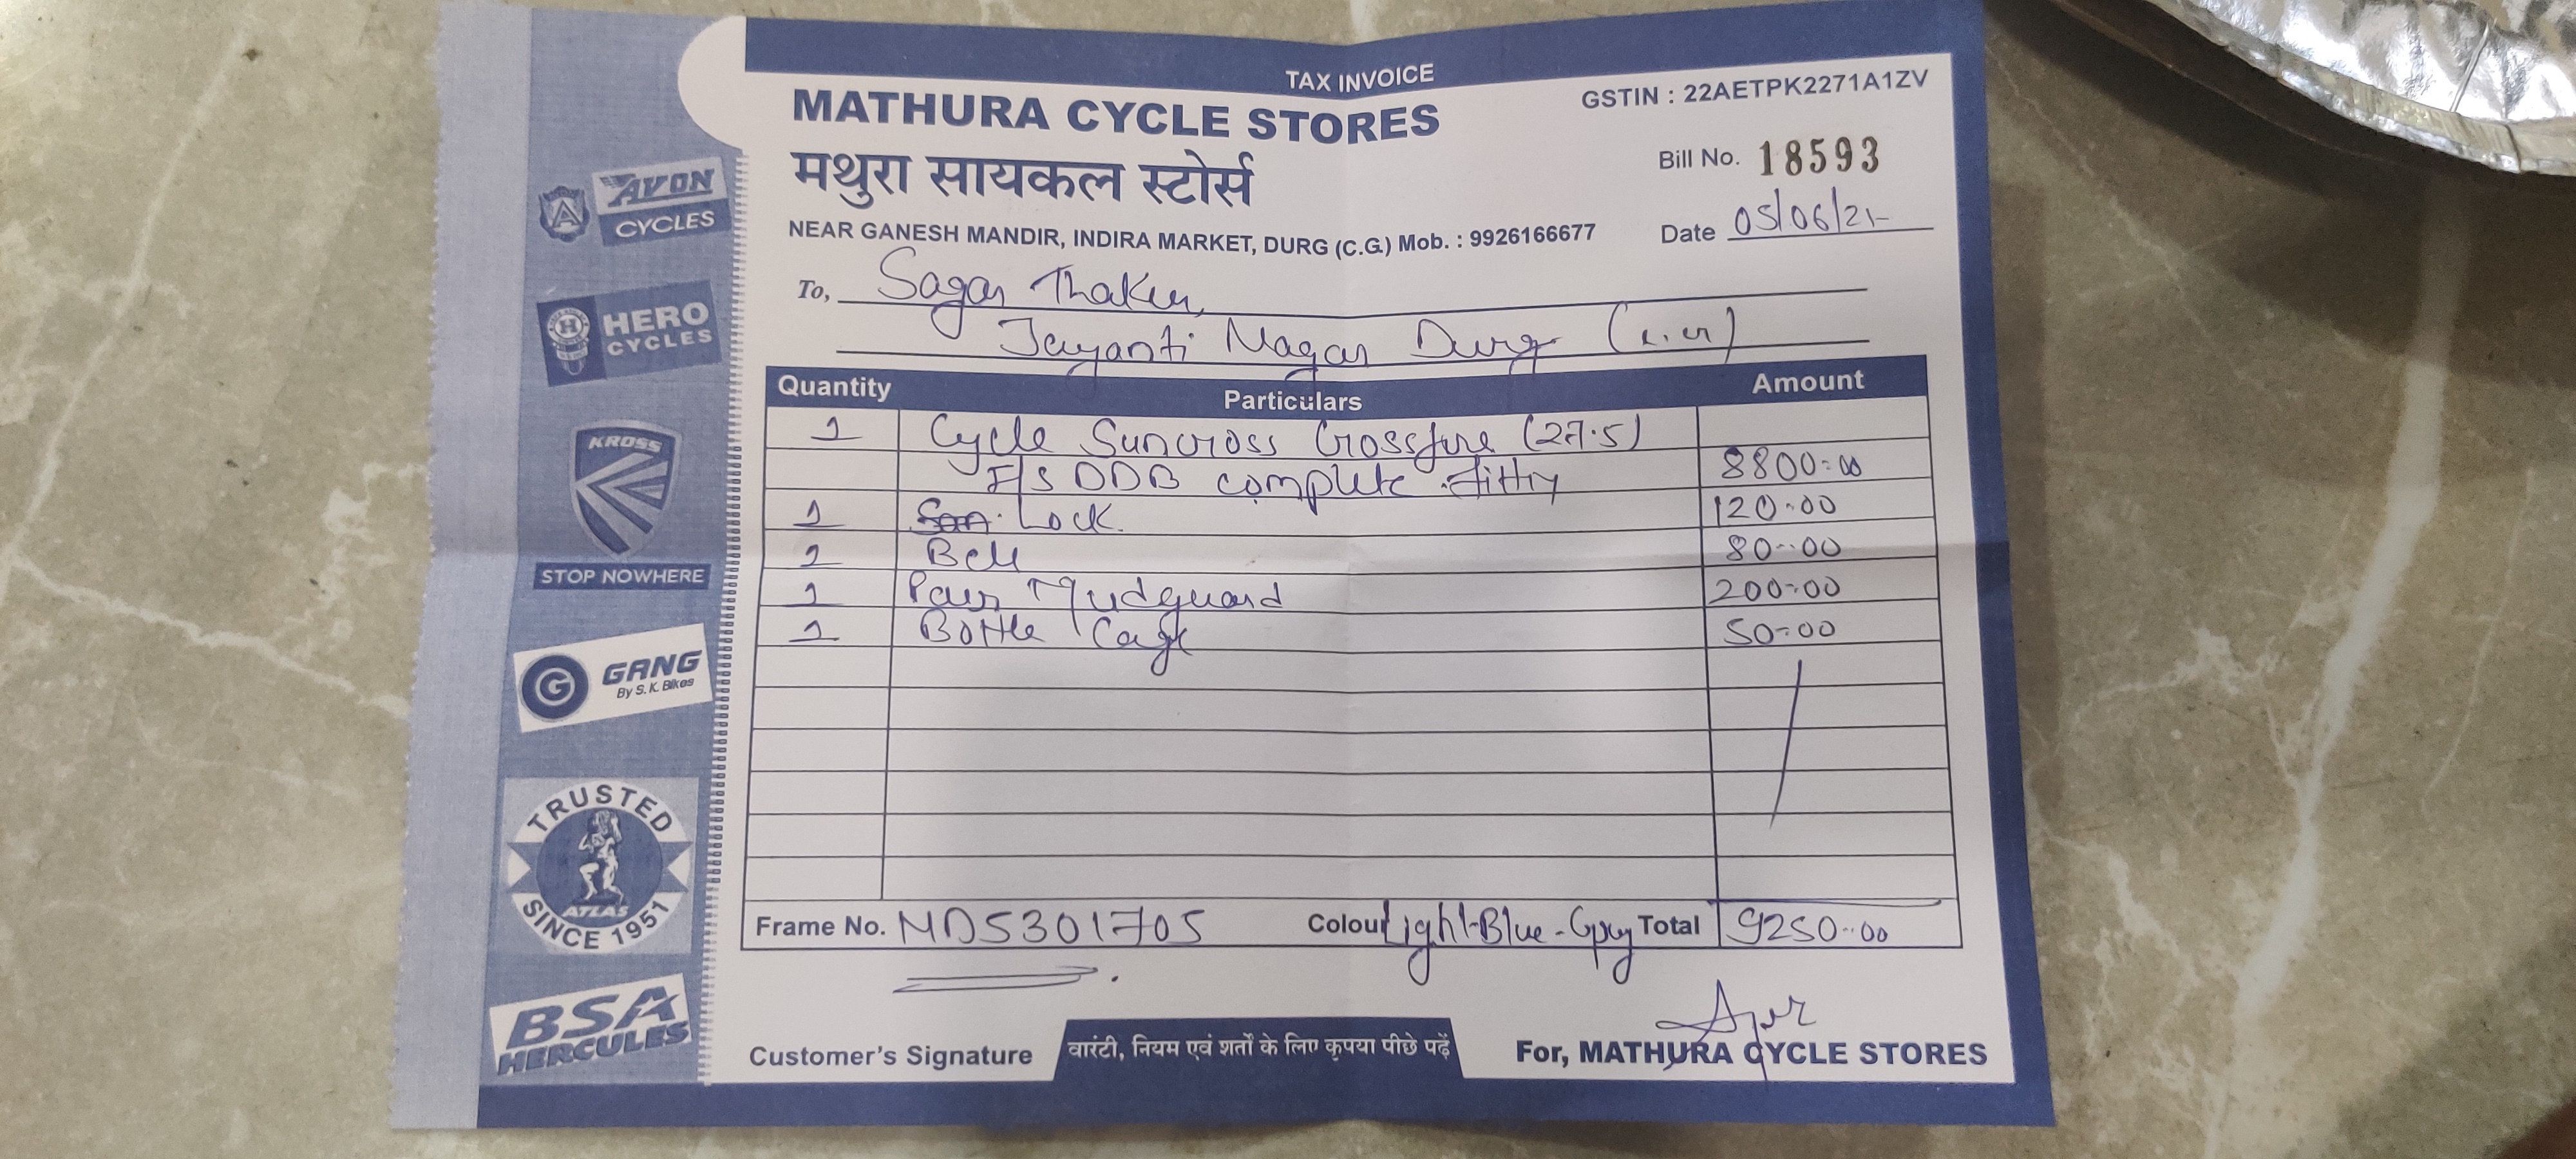 TAX INVOICE
MATHURA CYCLE STORES
GSTIN : 22AETPK2271A1ZV
मथुरा सायकल स्टोर्स
Bill No. 18593
NEAR GANESH MANDIR, INDIRA MARKET, DURG (C.G.) Mob. : 9926166677
Date 05/06/21-
To, Sagar Thakur,
Jayanti Nagar Durg
Quantity Particulars Amount
1 Cycle Suncross Crossfire (27.5)
F/S DDB complete fitting 8800-00
1 Lock. 120-00
1 Bell 80-00
1 Pair Mudguard 200-00
1 Bottle Cage 50-00
Frame No. MD5301705 Colour Light-Blue-Grey Total 9250-00
Customer's Signature
वारंटी, नियम एवं शर्तो के लिए कृपया पीछे पढ़ें
For, MATHURA CYCLE STORES
AVON
CYCLES
HERO
CYCLES
KROSS
STOP NOWHERE
G GANG
By S. K. Bikes
TRUSTED
ATLAS
SINCE 1951
BSA
HERCULES